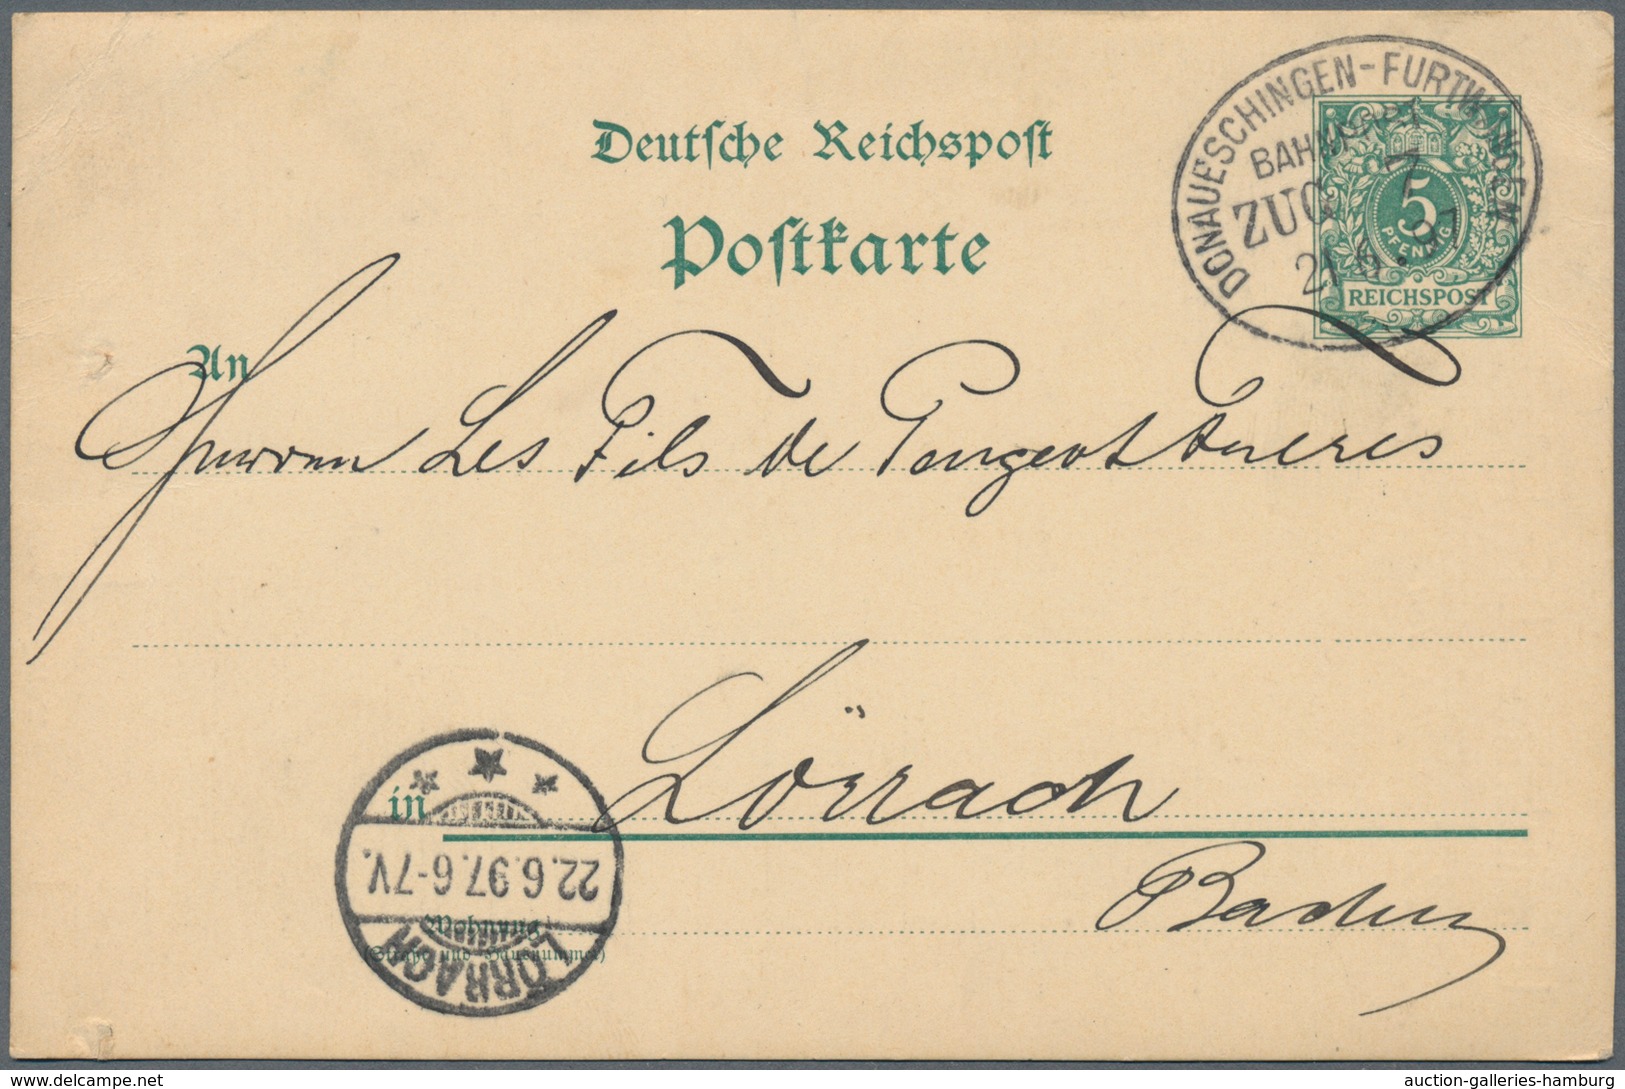 Deutsche Reichspost
Postkarte
DONAUESCHINGEN-FURTWANGEN
BAHNPOST
ZUG 7
21 6. 97
5
PFENNIG
REICHSPOST
An
Herren Les Fils de Peugeot Freres
in Lörrach
Baden
22.6.97.6-7V.
LÖRRACH
Wohnung
(Straße und Hausnummer)
auction-galleries-hamburg